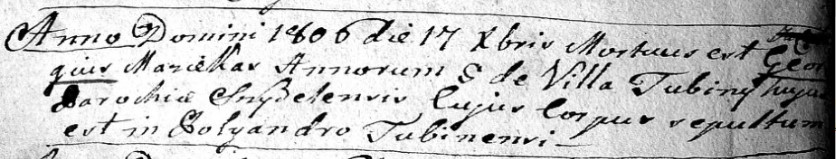 Anno Domini 1806 die 17 Xbris Mortuus est Geor
gius Maziellas Annorum 8 de Villa Tubiny hujus
Parochiæ Sny Cujus Corpus sepultum
est in Polyandro Tubinensi